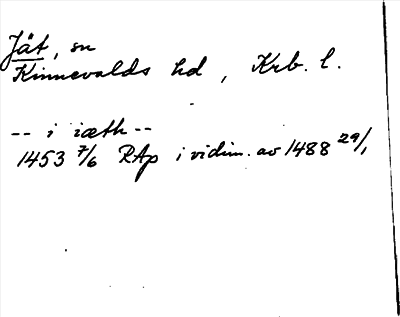 Jät, sn
Kinnevalds hd, Krb. l.
-- i iæth --
1453 7/6 RAp i vidim. av 1488 29/1